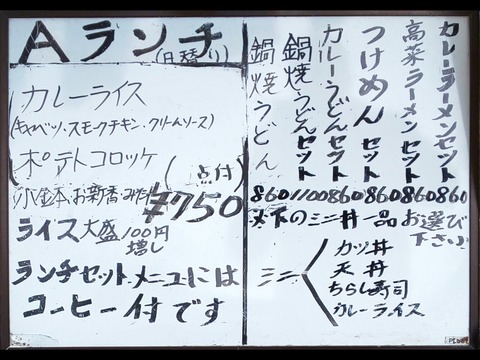 Aランチ(日替り)
カレーライス
(キャベツ・スモークチキン・クリームソース)
ポテトコロッケ
(一点付)
小鉢・お新香・みそ汁
¥750
ライス大盛100円増し
ランチセットメニューには
コーヒー付です
カレーラーメンセット 860
高菜ラーメンセット 860
つけめんセット 860
カレーうどんセット 860
鍋焼うどんセット 1100
鍋焼うどん 860
以下のミニ丼一品お選び下さい
ミニ
カツ丼
天丼
ちらし寿司
カレーライス